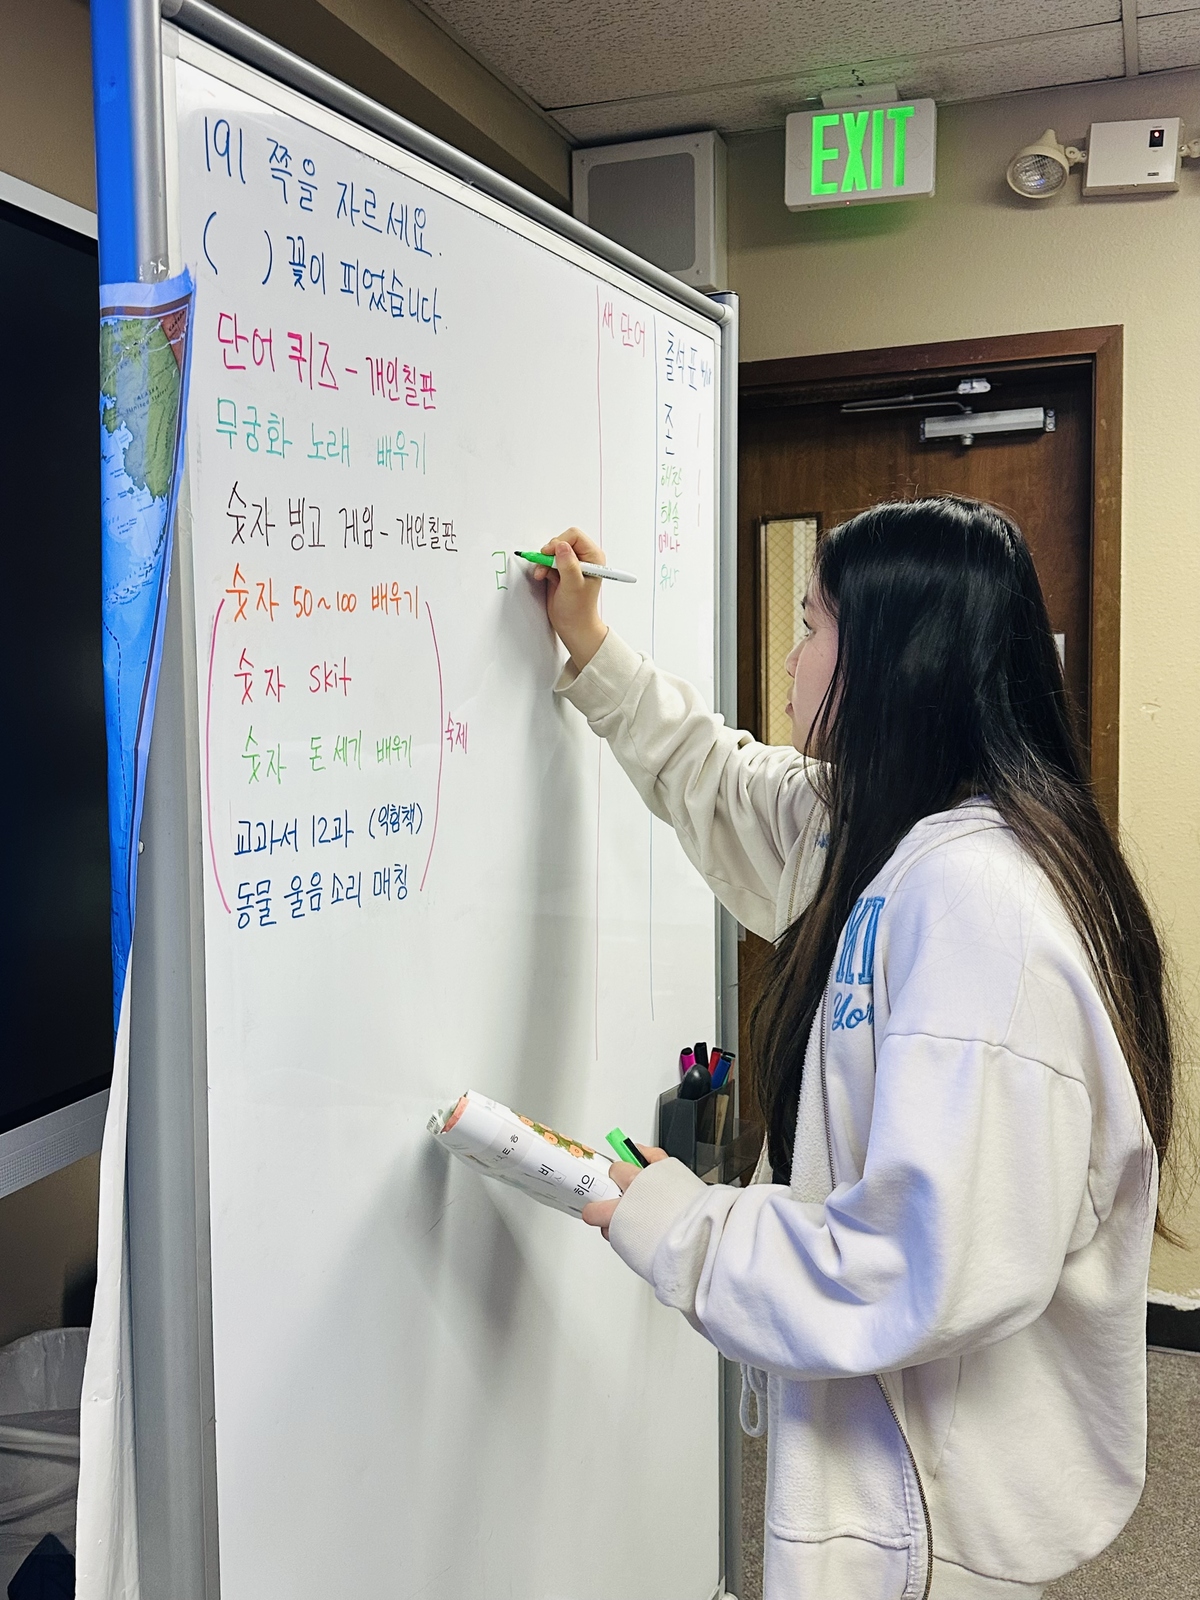 191 쪽을 자르세요.
( ) 꽃이 피었습니다.
단어 퀴즈 - 개인칠판
무궁화 노래 배우기
숫자 빙고 게임 - 개인칠판
숫자 50~100 배우기
숫자 skit
숫자 돈 세기 배우기
숙제
교과서 12과 (익힘책)
동물 울음소리 매칭
새 단어
출석표
조
예나
EXIT